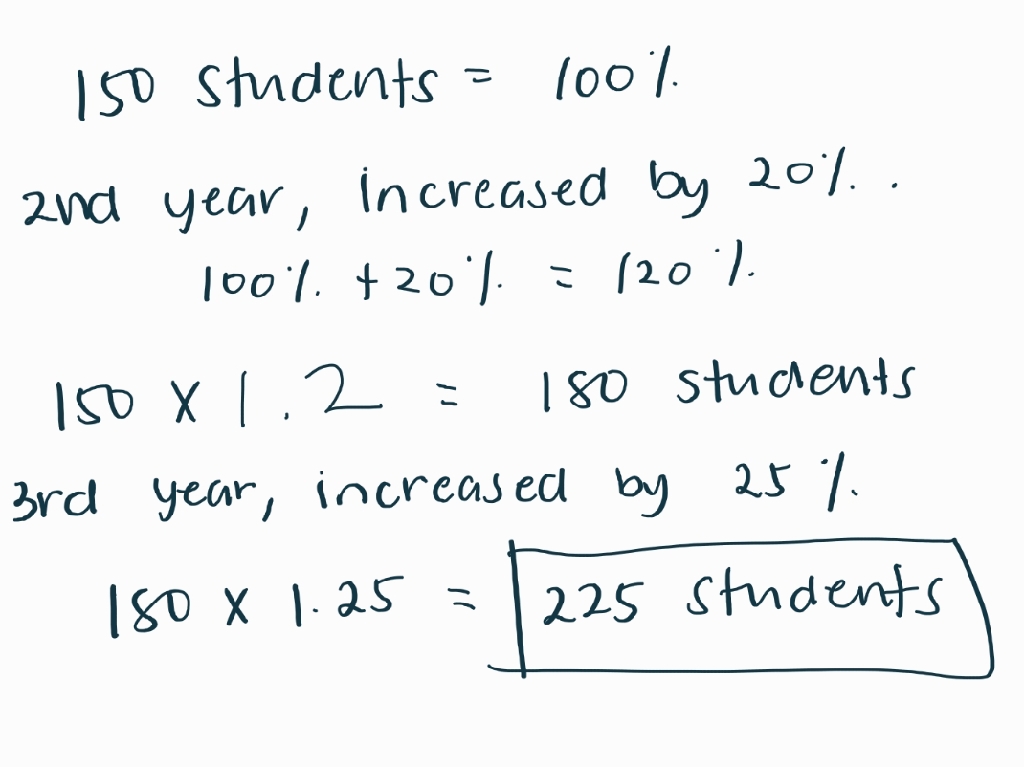 150 students = 100%
2nd year, increased by 20%.
100% + 20% = 120%
150 x 1.2 = 180 students
3rd year, increased by 25%
180 x 1.25 = 225 students